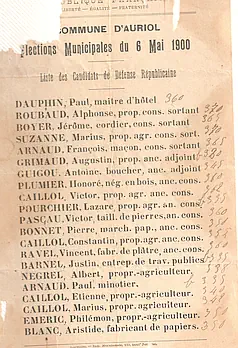 COMMUNE D'AURIOL
Elections Municipales du 6 Mai 1900
Liste des Candidats de Défense Républicaine
DAUPHIN, Paul, maitre d'hôtel 360
ROUBAUD, Alphonse, prop. cons. sortant
BOYER, Jérôme, cordier, cons. sortant
SUZANNE, Marius, prop. agr. cons. sort.
ARNAUD, François, maçon, cons. sortant
GRIMAUD, Augustin, prop. anc. adjoint
GUIGOU, Antoine, boucher, anc. adjoint
PLUMIER, Honoré, nég. en bois, anc. cons.
CAILLOL, Victor, prop. agr. anc. cons.
POURCHIER, Lazare, prop. agr. an. cons.
PASCAU, Victor, taill. de pierres, an. cons.
BONNET, Pierre, march. pap., anc. cons.
CAILLOL, Constantin, prop. agr. anc. cons.
RAVEL, Vincent, fabr. de plâtre, anc. cons.
BARNIER, Justin, entrep. de trav. publics
NEGREL, Albert, propr.-agriculteur.
ARNAUD, Paul, minotier.
CAILLOL, Etienne, propr.-agriculteur.
CAILLOL, Marius, propr. agriculteur.
EMERIC, Philémon, propr.-agriculteur.
BLANC, Aristide, fabricant de papiers.